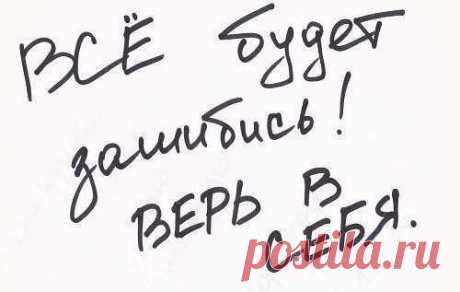 ВСЁ будет
зашибись!
ВЕРЬ В
СЕБЯ.
postila.ru